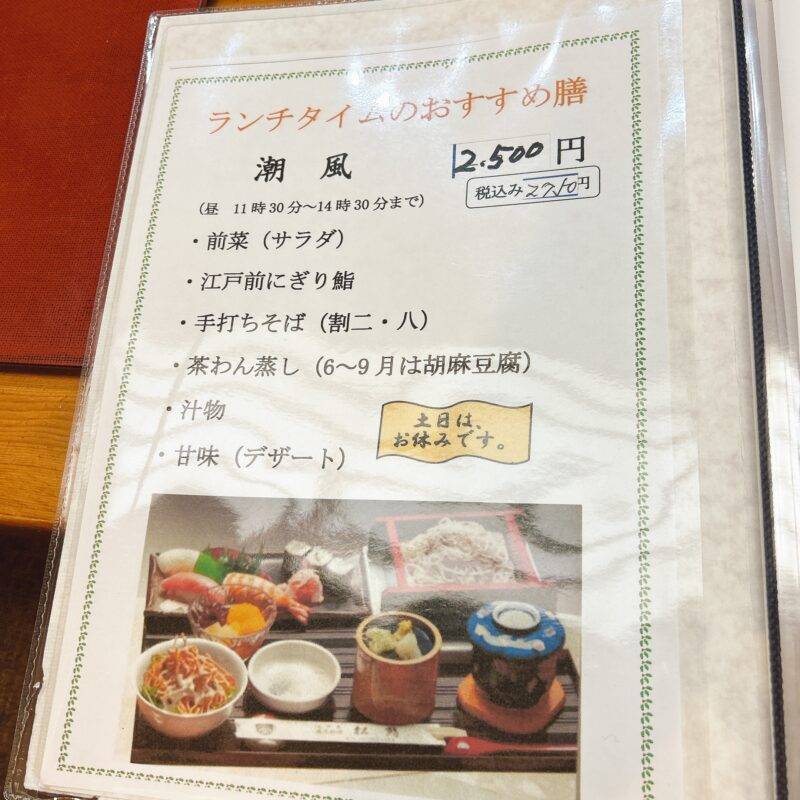 ランチタイムのおすすめ膳
潮 風 2.500円
税込み2750円
（昼 11時30分～14時30分まで）
・前菜（サラダ）
・江戸前にぎり鮨
・手打ちそば（割二・八）
・茶わん蒸し（6～9月は胡麻豆腐）
・汁物
・甘味（デザート）
土日は、
お休みです。